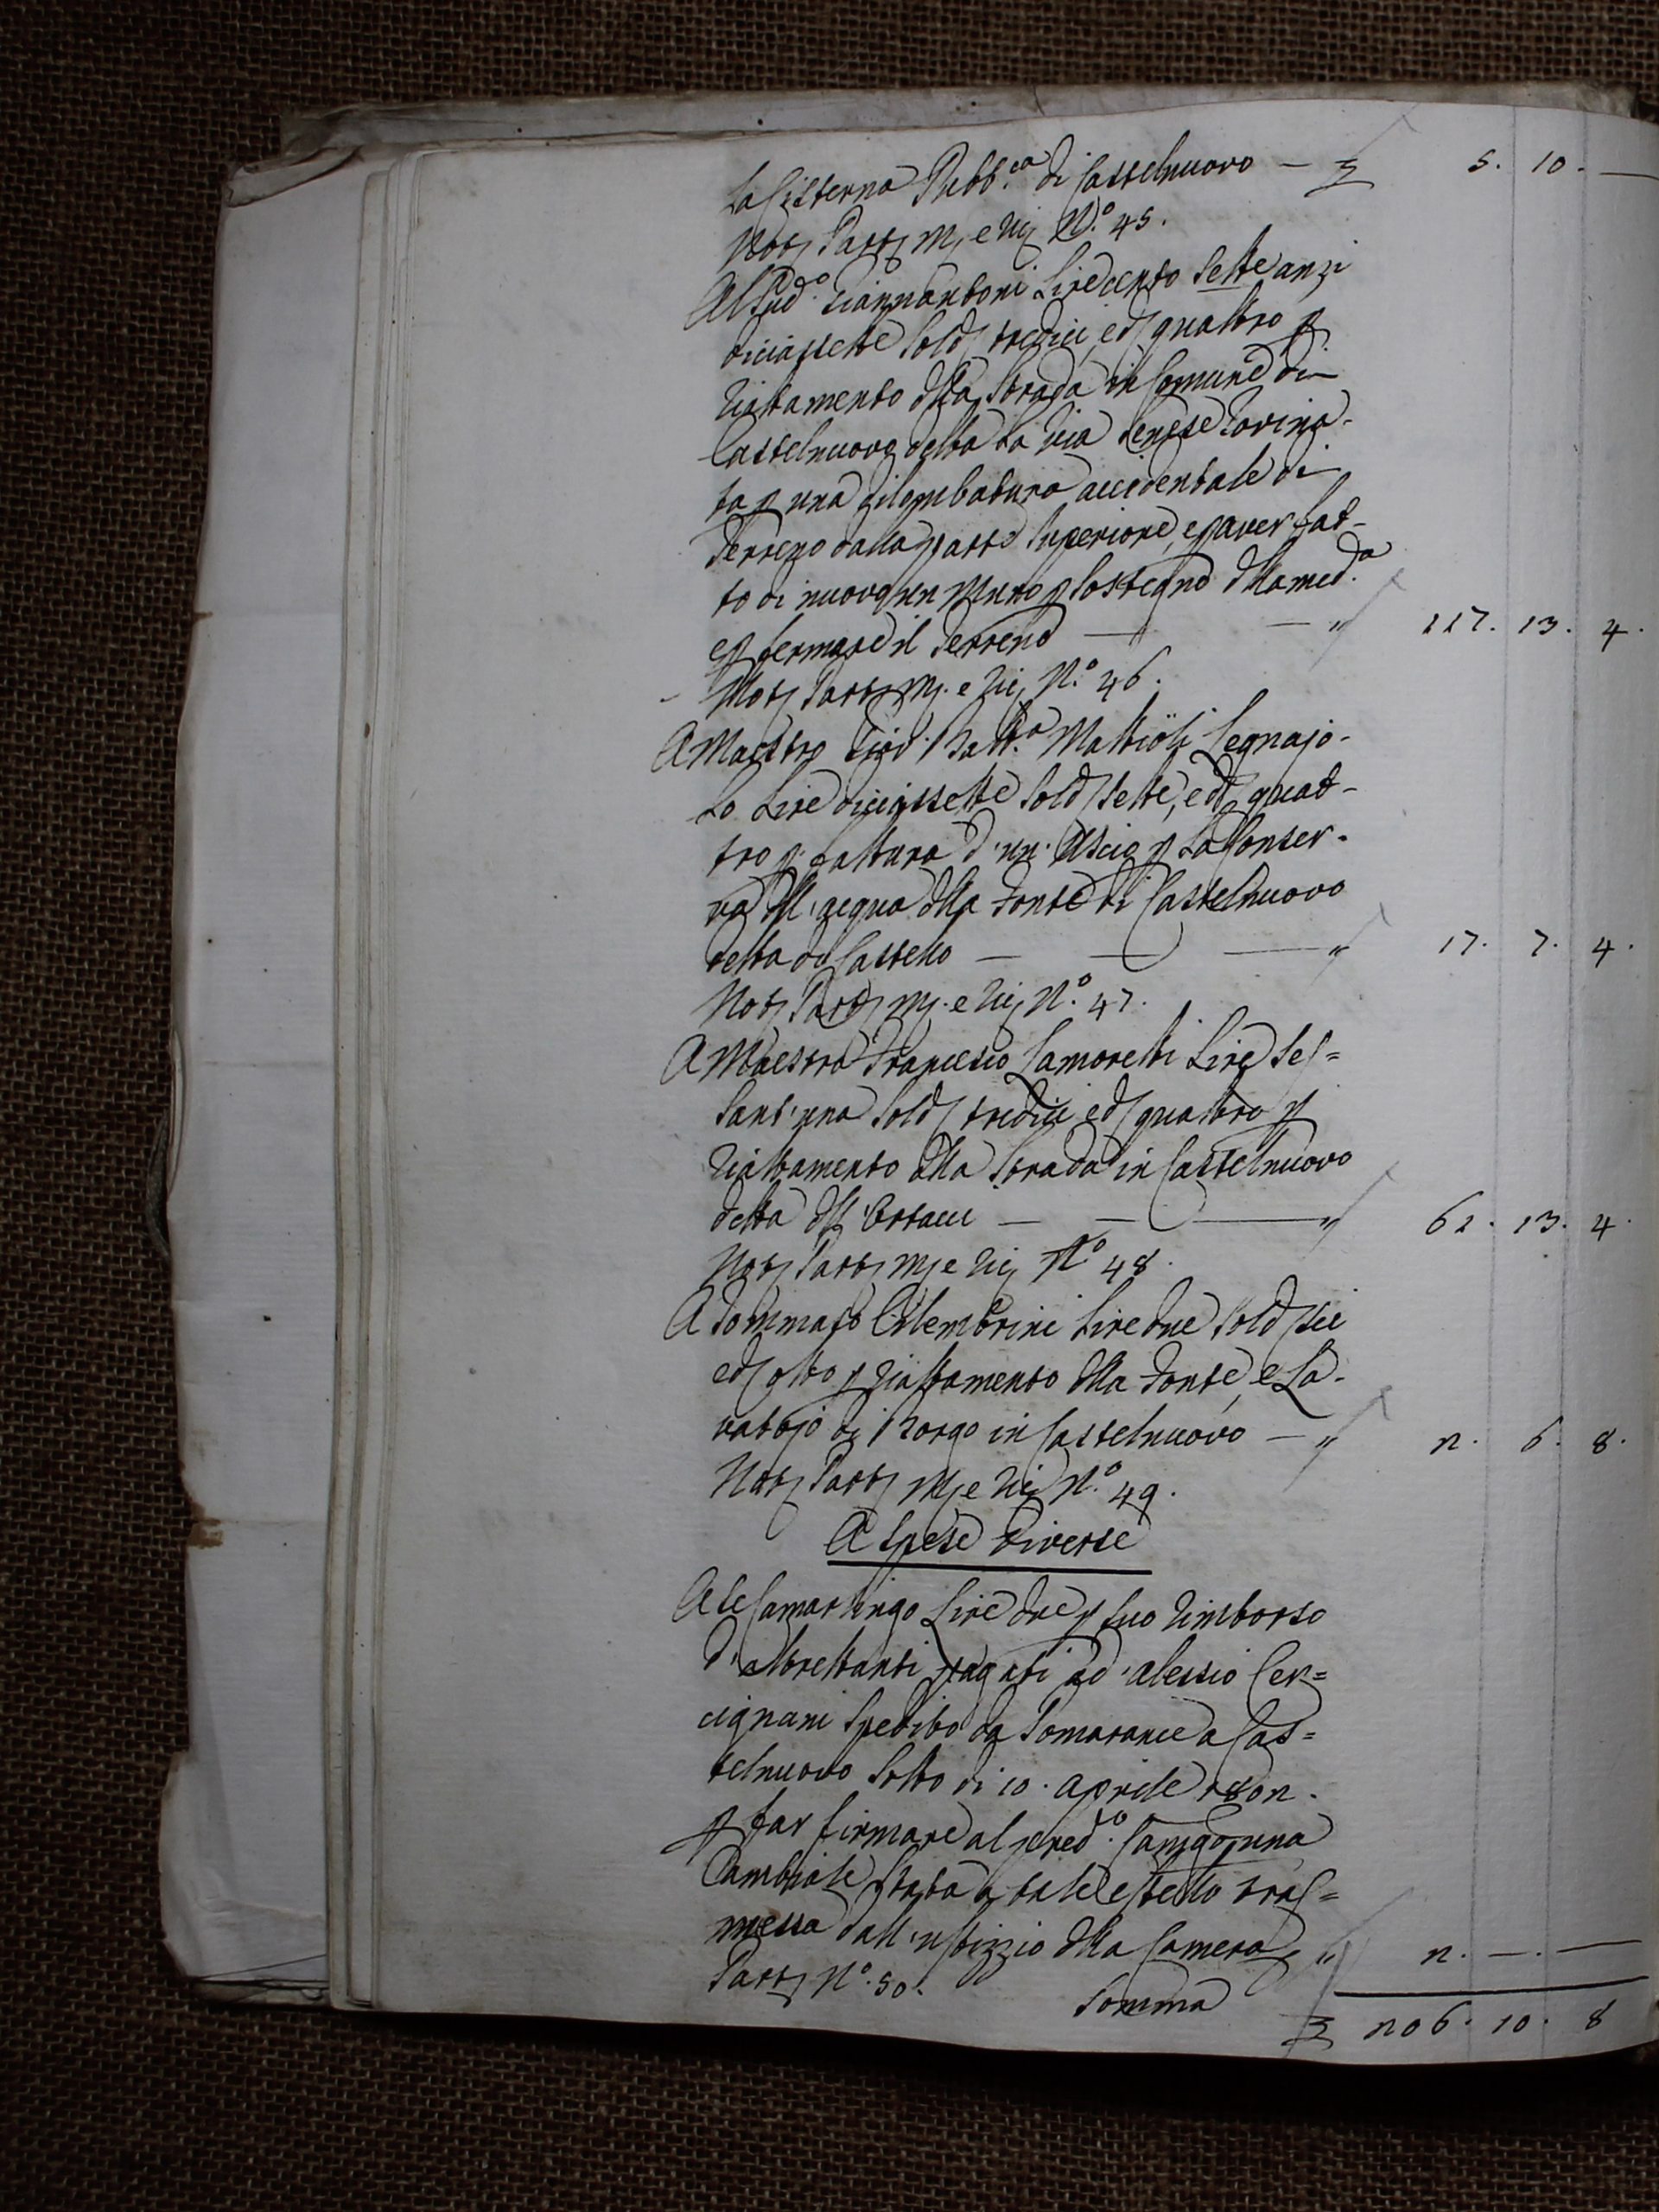 la Cisterna Pubb.ca di Castelnuovo — £ 5. 10. —
N.o 45.
Al Sud.o Giannantoni Lire cento Sette anzi
diciassette Sold tredici, e d quattro p
riattamento dlla Strada in Comune di
Castelnuovo detta la Via Senese rovina-
ta p una accidentale di
Terreno dalla parte Superiore, e p aver fat-
to di nuovo un Muro p Sostegno dlla med.a
e p fermare il Terreno — — " 117. 13. 4.
N.o 46.
A Maestro Giov. Batt.a Mattioli Legnajo-
lo Lire diciassette Sold Sette, e d quat-
tro p fattura d'un Uscio p la Conser-
va dll'acqua dlla Fonte di Castelnuovo
detta di Castello — — — " 17. 7. 4.
N.o 47.
A Maestro Francesco Lamoretti Lire Ses=
sant'una Sold tredici e d quattro p
riattamento dlla Strada in Castelnuovo
detta — — — " 61. 13. 4.
N.o 48.
A Tommaso Lire due Sold sei
e d otto p riattamento dlla Fonte, e La-
vatojo di Borgo in Castelnuovo — " 2. 6. 8.
N.o 49.
A Spese Diverse
A Camarlingo Lire due p suo rimborso
d'altrettanti pagati ad Alessio Cer=
cignani Spedito da Pomarance a Cas=
telnuovo Sotto di 10. Aprile 1802.
p far firmare al pred.o Camgo una
Cambiale Stata a tale effetto tras=
messa dall'uffizzio dlla Camera, " 2. —. —
N.o 50.
Somma £ 206. 10. 8